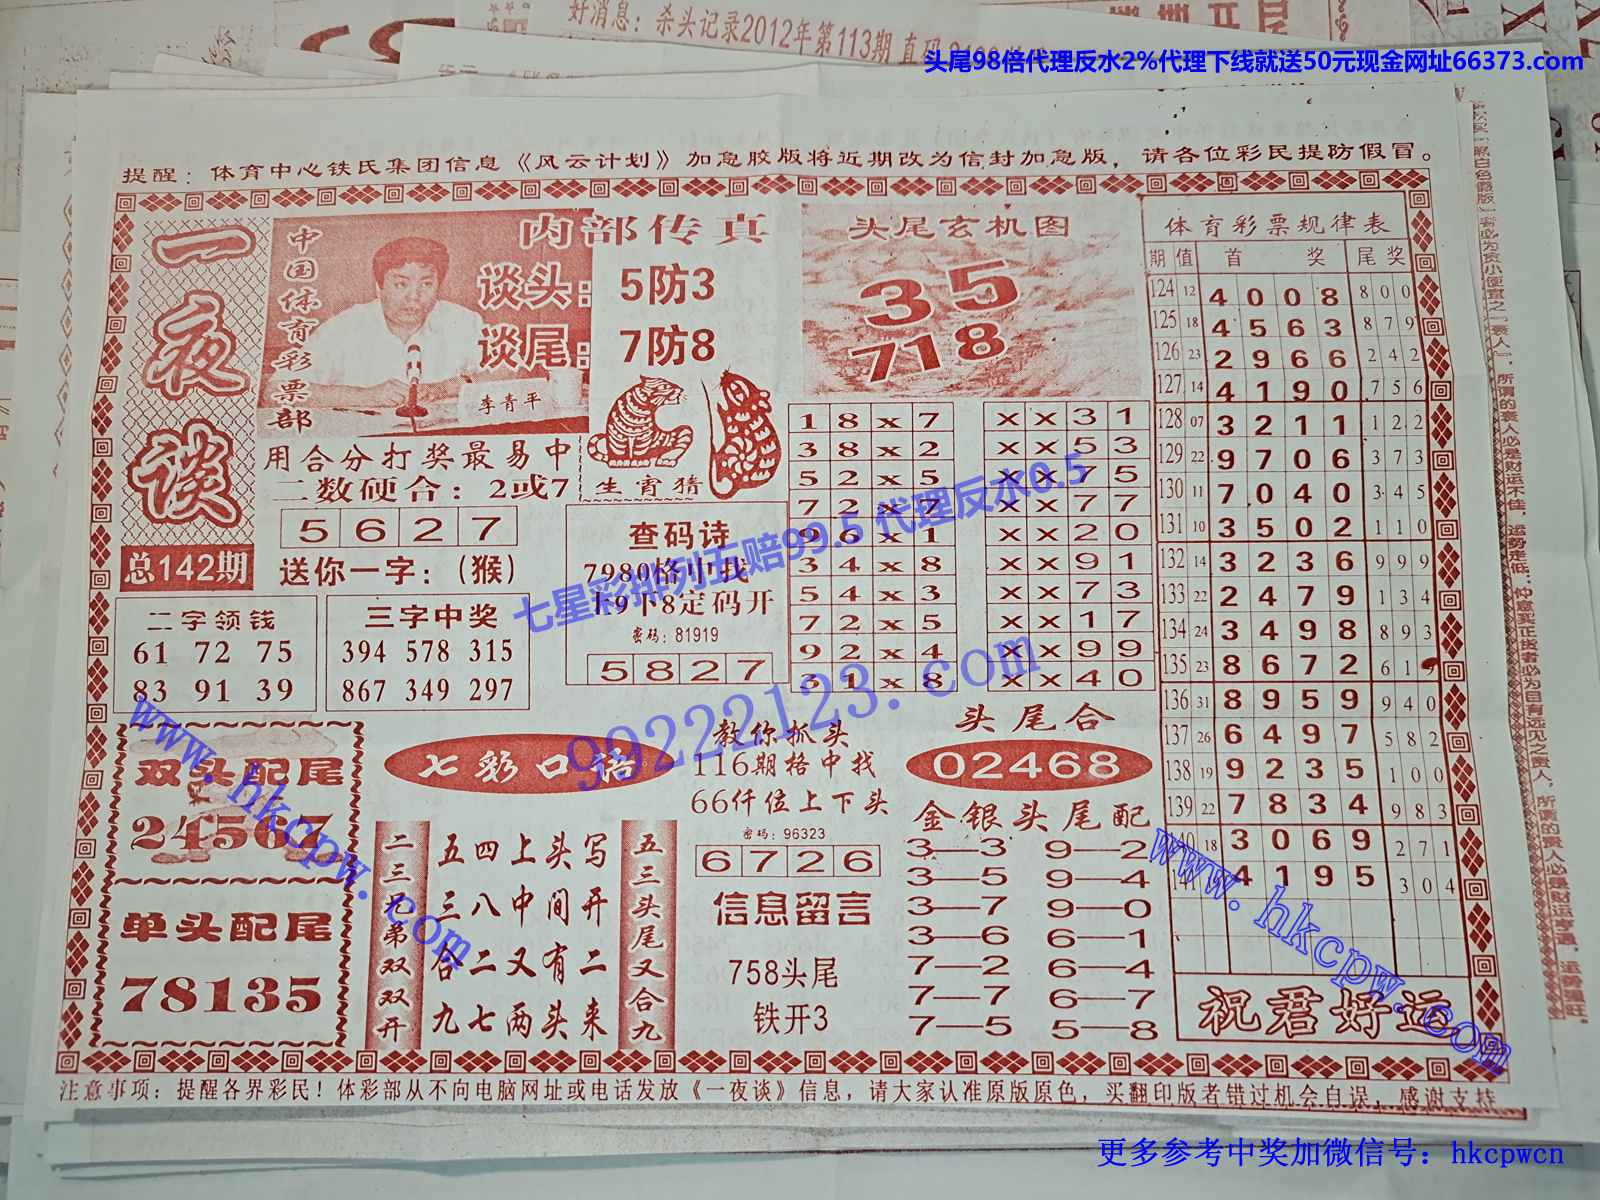 好消息：杀头记录2012年第113期
头尾98倍代理反水2%代理下线就送50元现金网址66373.com
提醒：体育中心铁氏集团信息《风云计划》加急胶版将近期改为信封加急版，请各位彩民提防假冒。
一夜谈
总142期
中国体育彩票部
内部传真
谈头：5防3
谈尾：7防8
李青平
生肖猜
用合分打奖最易中
二数硬合：2或7
5 6 2 7
送你一字：（猴）
二字领钱
61 72 75
83 91 39
三字中奖
394 578 315
867 349 297
查码诗
7980格中找
上9下8定码开
密码：81919
5 8 2 7
头尾玄机图
35
718
1 8 x 7
3 8 x 2
5 2 x 5
7 2 x 7
9 6 x 1
3 4 x 8
5 4 x 3
7 2 x 5
9 2 x 4
3 1 x 8
x x 3 1
x x 5 3
x x 7 5
x x 7 7
x x 2 0
x x 9 1
x x 7 3
x x 1 7
x x 9 9
x x 4 0
体育彩票规律表
期 值 首 奖 尾 奖
124 12 4 0 0 8 8 0 0
125 18 4 5 6 3 8 7 9
126 23 2 9 6 6 2 4 2
127 14 4 1 9 0 7 5 6
128 07 3 2 1 1 1 2 2
129 22 9 7 0 6 3 7 3
130 11 7 0 4 0 3 4 5
131 10 3 5 0 2 1 1 0
132 14 3 2 3 6 9 9 9
133 22 2 4 7 9 1 3 4
134 24 3 4 9 8 8 9 3
135 23 8 6 7 2 6 1
136 31 8 9 5 9 9 4 0
137 26 6 4 9 7 5 8 2
138 19 9 2 3 5 1 0 0
139 22 7 8 3 4 9 8 3
140 18 3 0 6 9 2 7 1
141 4 1 9 5 3 0 4
祝君好运
双头配尾
24567
单头配尾
78135
七彩口语
二三九第双双开
五四上头写
三八中间开
合二又有二
九七两头来
五三头尾又合九
教你抓头
116期格中找
66仟位上下头
密码：96323
6 7 2 6
信息留言
758头尾
铁开3
头尾合
02468
金银头尾配
3—3 9—2
3—5 9—4
3—7 9—0
3—6 6—1
7—2 6—4
7—7 6—7
7—5 5—8
注意事项：提醒各界彩民！体彩部从不向电脑网址或电话发放《一夜谈》信息，请大家认准原版原色，买翻印版者错过机会自误，感谢支持
七星彩排列五赔99.5 代理反水0.5
99222123.com
www.hkcpw.com
www.hkcpw.com
更多参考中奖加微信号：hkcpwcn